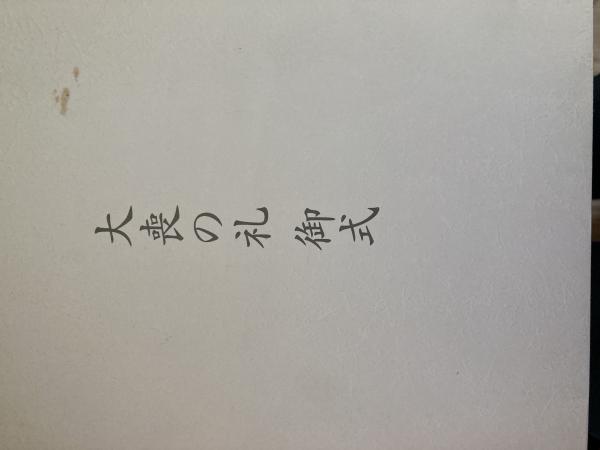 大喪の礼 御式